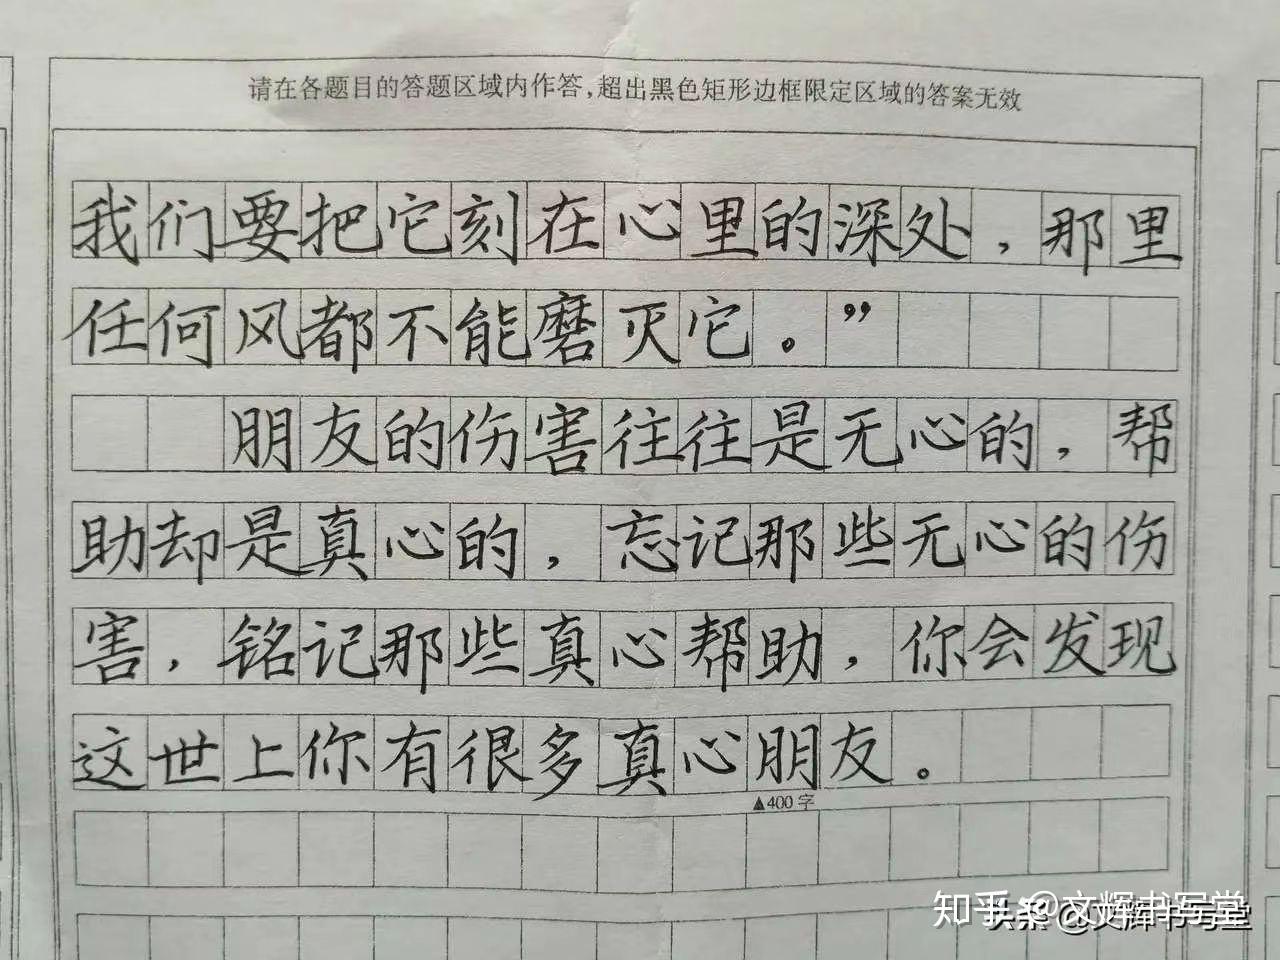 请在各题目的答题区域内作答,超出黑色矩形边框限定区域的答案无效
我们要把它刻在心里的深处，那里
任何风都不能磨灭它。”
朋友的伤害往往是无心的，帮
助却是真心的，忘记那些无心的伤
害，铭记那些真心帮助，你会发现
这世上你有很多真心朋友。
▲400字
知乎 @文辉书写堂
头条 @文辉书写堂